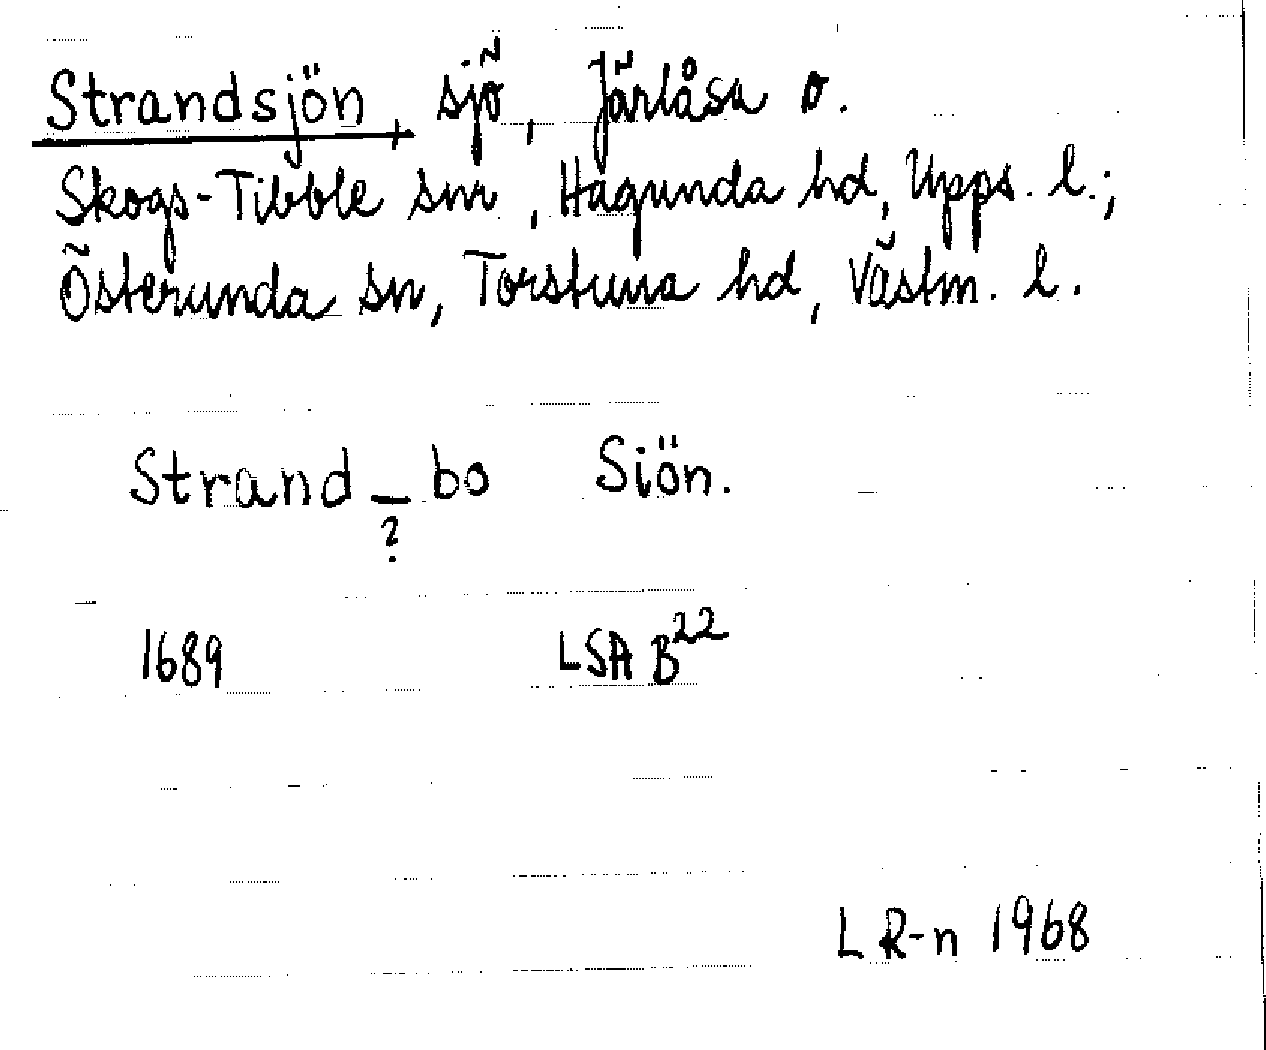 Strandsjön, sjö, Järlåsa o.
Skogs-Tibble snr, Hagunda hd, Upps. l.;
Österunda sn, Torstuna hd, Västm. l.
Strand_bo Siön.
?
1689 LSA B22
L R-n 1968